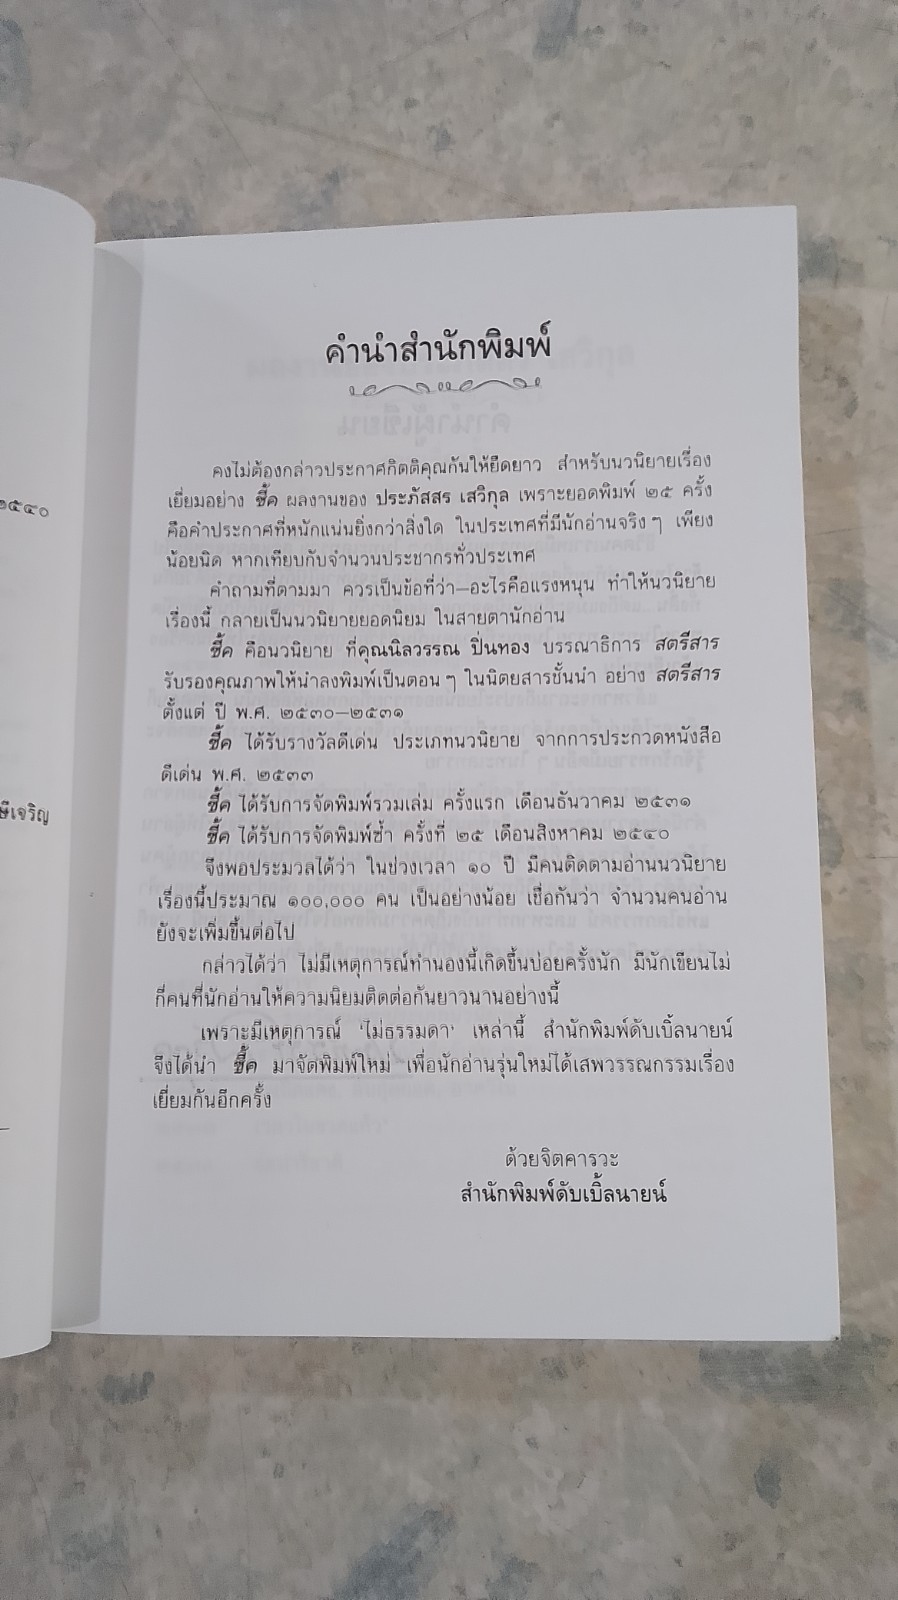 ๒๕๔๐
ษีเจริญ
คำนำสำนักพิมพ์
คงไม่ต้องกล่าวประกาศกิตติคุณกันให้ยืดยาว สำหรับนวนิยายเรื่อง
เยี่ยมอย่าง ชี้ค ผลงานของ ประภัสสร เสวิกุล เพราะยอดพิมพ์ ๒๕ ครั้ง
คือคำประกาศที่หนักแน่นยิ่งกว่าสิ่งใด ในประเทศที่มีนักอ่านจริงๆ เพียง
น้อยนิด หากเทียบกับจำนวนประชากรทั่วประเทศ
คำถามที่ตามมา ควรเป็นข้อที่ว่า—อะไรคือแรงหนุน ทำให้นวนิยาย
เรื่องนี้ กลายเป็นนวนิยายยอดนิยม ในสายตานักอ่าน
ชี้ค คือนวนิยาย ที่คุณนิลวรรณ ปิ่นทอง บรรณาธิการ สตรีสาร
รับรองคุณภาพให้นำลงพิมพ์เป็นตอนๆ ในนิตยสารชั้นนำ อย่าง สตรีสาร
ตั้งแต่ ปี พ.ศ. ๒๕๓๐—๒๕๓๑
ชี้ค ได้รับรางวัลดีเด่น ประเภทนวนิยาย จากการประกวดหนังสือ
ดีเด่น พ.ศ. ๒๕๓๓
ชี้ค ได้รับการจัดพิมพ์รวมเล่ม ครั้งแรก เดือนธันวาคม ๒๕๓๑
ชี้ค ได้รับการจัดพิมพ์ซ้ำ ครั้งที่ ๒๕ เดือนสิงหาคม ๒๕๔๐
จึงพอประมวลได้ว่า ในช่วงเวลา ๑๐ ปี มีคนติดตามอ่านนวนิยาย
เรื่องนี้ประมาณ ๑๐๐,๐๐๐ คน เป็นอย่างน้อย เชื่อกันว่า จำนวนคนอ่าน
ยังจะเพิ่มขึ้นต่อไป
กล่าวได้ว่า ไม่มีเหตุการณ์ทำนองนี้เกิดขึ้นบ่อยครั้งนัก มีนักเขียนไม่
กี่คนที่นักอ่านให้ความนิยมติดต่อกันยาวนานอย่างนี้
เพราะมีเหตุการณ์ 'ไม่ธรรมดา' เหล่านี้ สำนักพิมพ์ดับเบิ้ลนายน์
จึงได้นำ ชี้ค มาจัดพิมพ์ใหม่ เพื่อนักอ่านรุ่นใหม่ได้เสพวรรณกรรมเรื่อง
เยี่ยมกันอีกครั้ง
ด้วยจิตคารวะ
สำนักพิมพ์ดับเบิ้ลนายน์